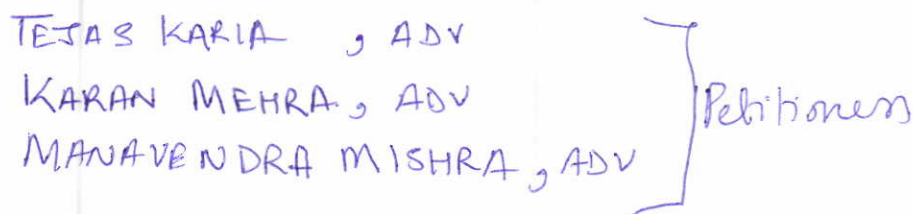 TEJAS KARIA , ADV
KARAN MEHRA, ADV
MANAVENDRA MISHRA, ADV
Petitioners